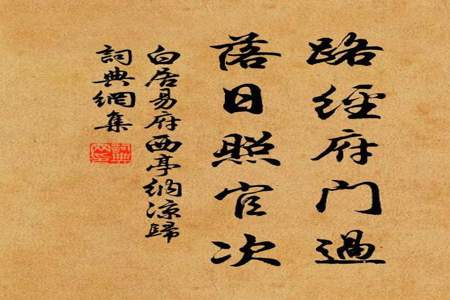 路經府門過
落日照官次
白居易府西亭納涼歸
詞典網集